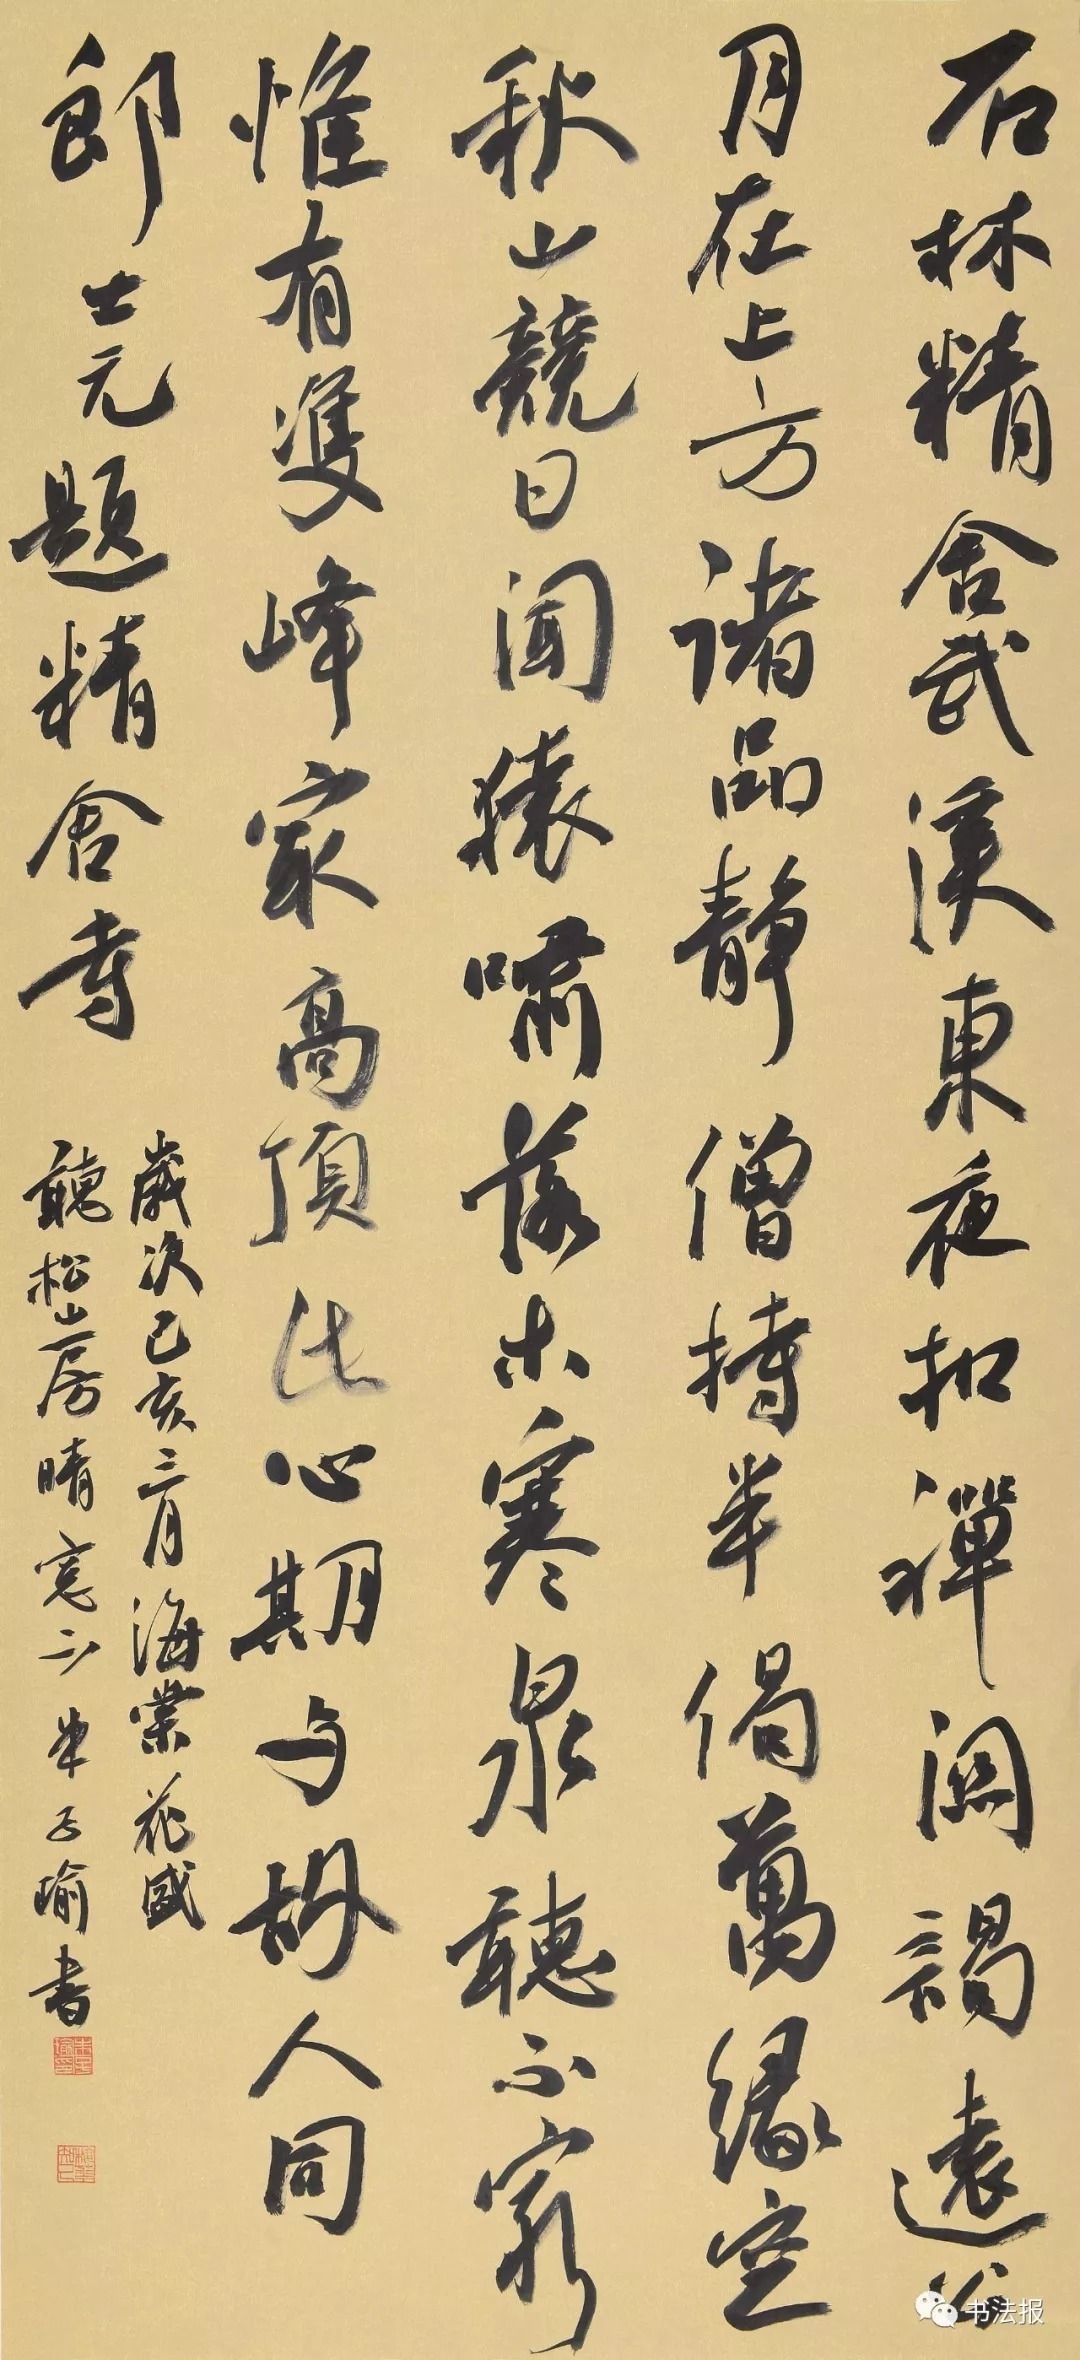 石林精舍武溪東夜扣禪關謁遠公
月在上方諸品靜僧持半偈萬緣空
秋山競日聞猿嘯落木寒泉聽不窮
惟有雙峰冣高頂此心期与故人同
郎士元題精舍寺
歲次己亥三月海棠花盛
聽松山房晴窓下瑜書
书法报